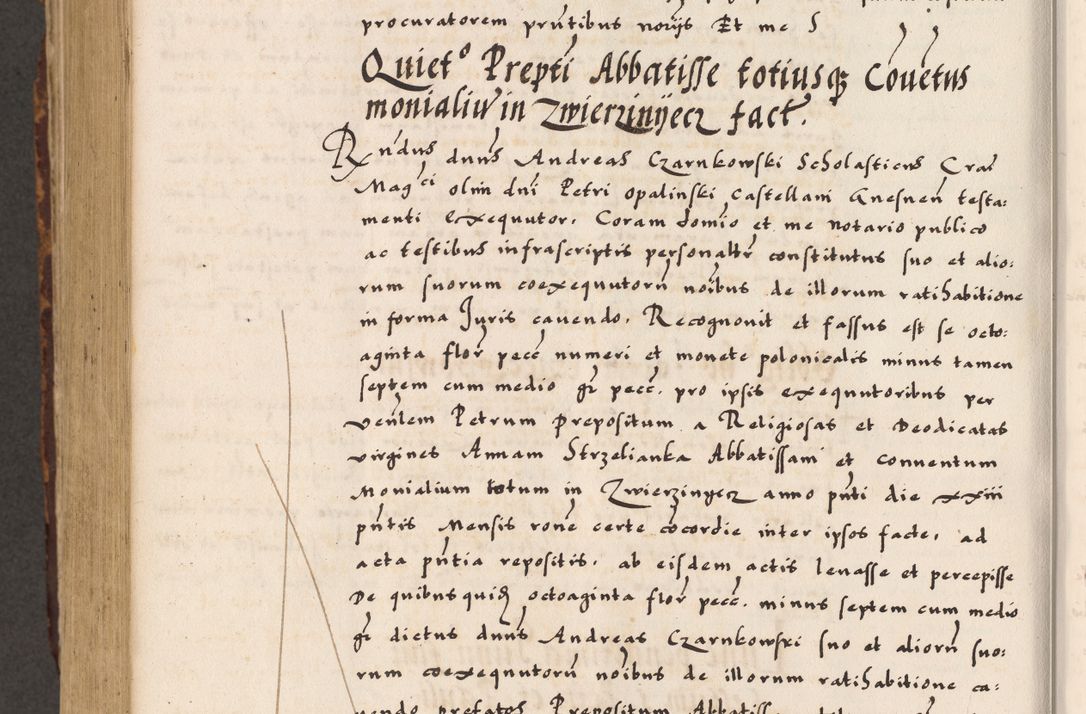 procuratorem pñtibus norijs Et me S
Quietº Prepti Abbatisse totiusq Cõuẽtus
monialiũ in Zwierzinijecz fact.
Rñdus dnns Andreas Czarnkowski Scholasticus Cran
Magci olim dni Petri opalinski castellani Gnesneñ testa:
menti exequutor, Coram domio et me notario publico
ac testibus infrascriptis personaltr constitutus suo et alio:
rum suorum coexequutorũ noibus de illorum ratihabitione
in forma Juris cauendo, Recognouit et fassus est se octo:
aginta flor pecc numeri et monete polonicalis minus tamen
septem cum medio gr pecc, pro ipsis exequutoribus per
veñlem Petrum Prepositum a Religiosas et Deodicatas
virgines Annam Strzelianka Abbatissam et Conuentum
Monialium totum in Zwierzinyecz anno pñti die xxiii
pñtis Mensis rone certe cõcordie inter ipsos facte, ad
acta pñtia repositis, ab eisdem actis leuasse et percepisse
De quibus quid octoaginta flor pecc, minus septem cum medio
gr dictus dnns Andreas Czarnkowski suo et aliorũ suo:
rum coexequutorũ noibus de illorum ratihabitione ca:
uendo prefatos Prepositum Abbatissam